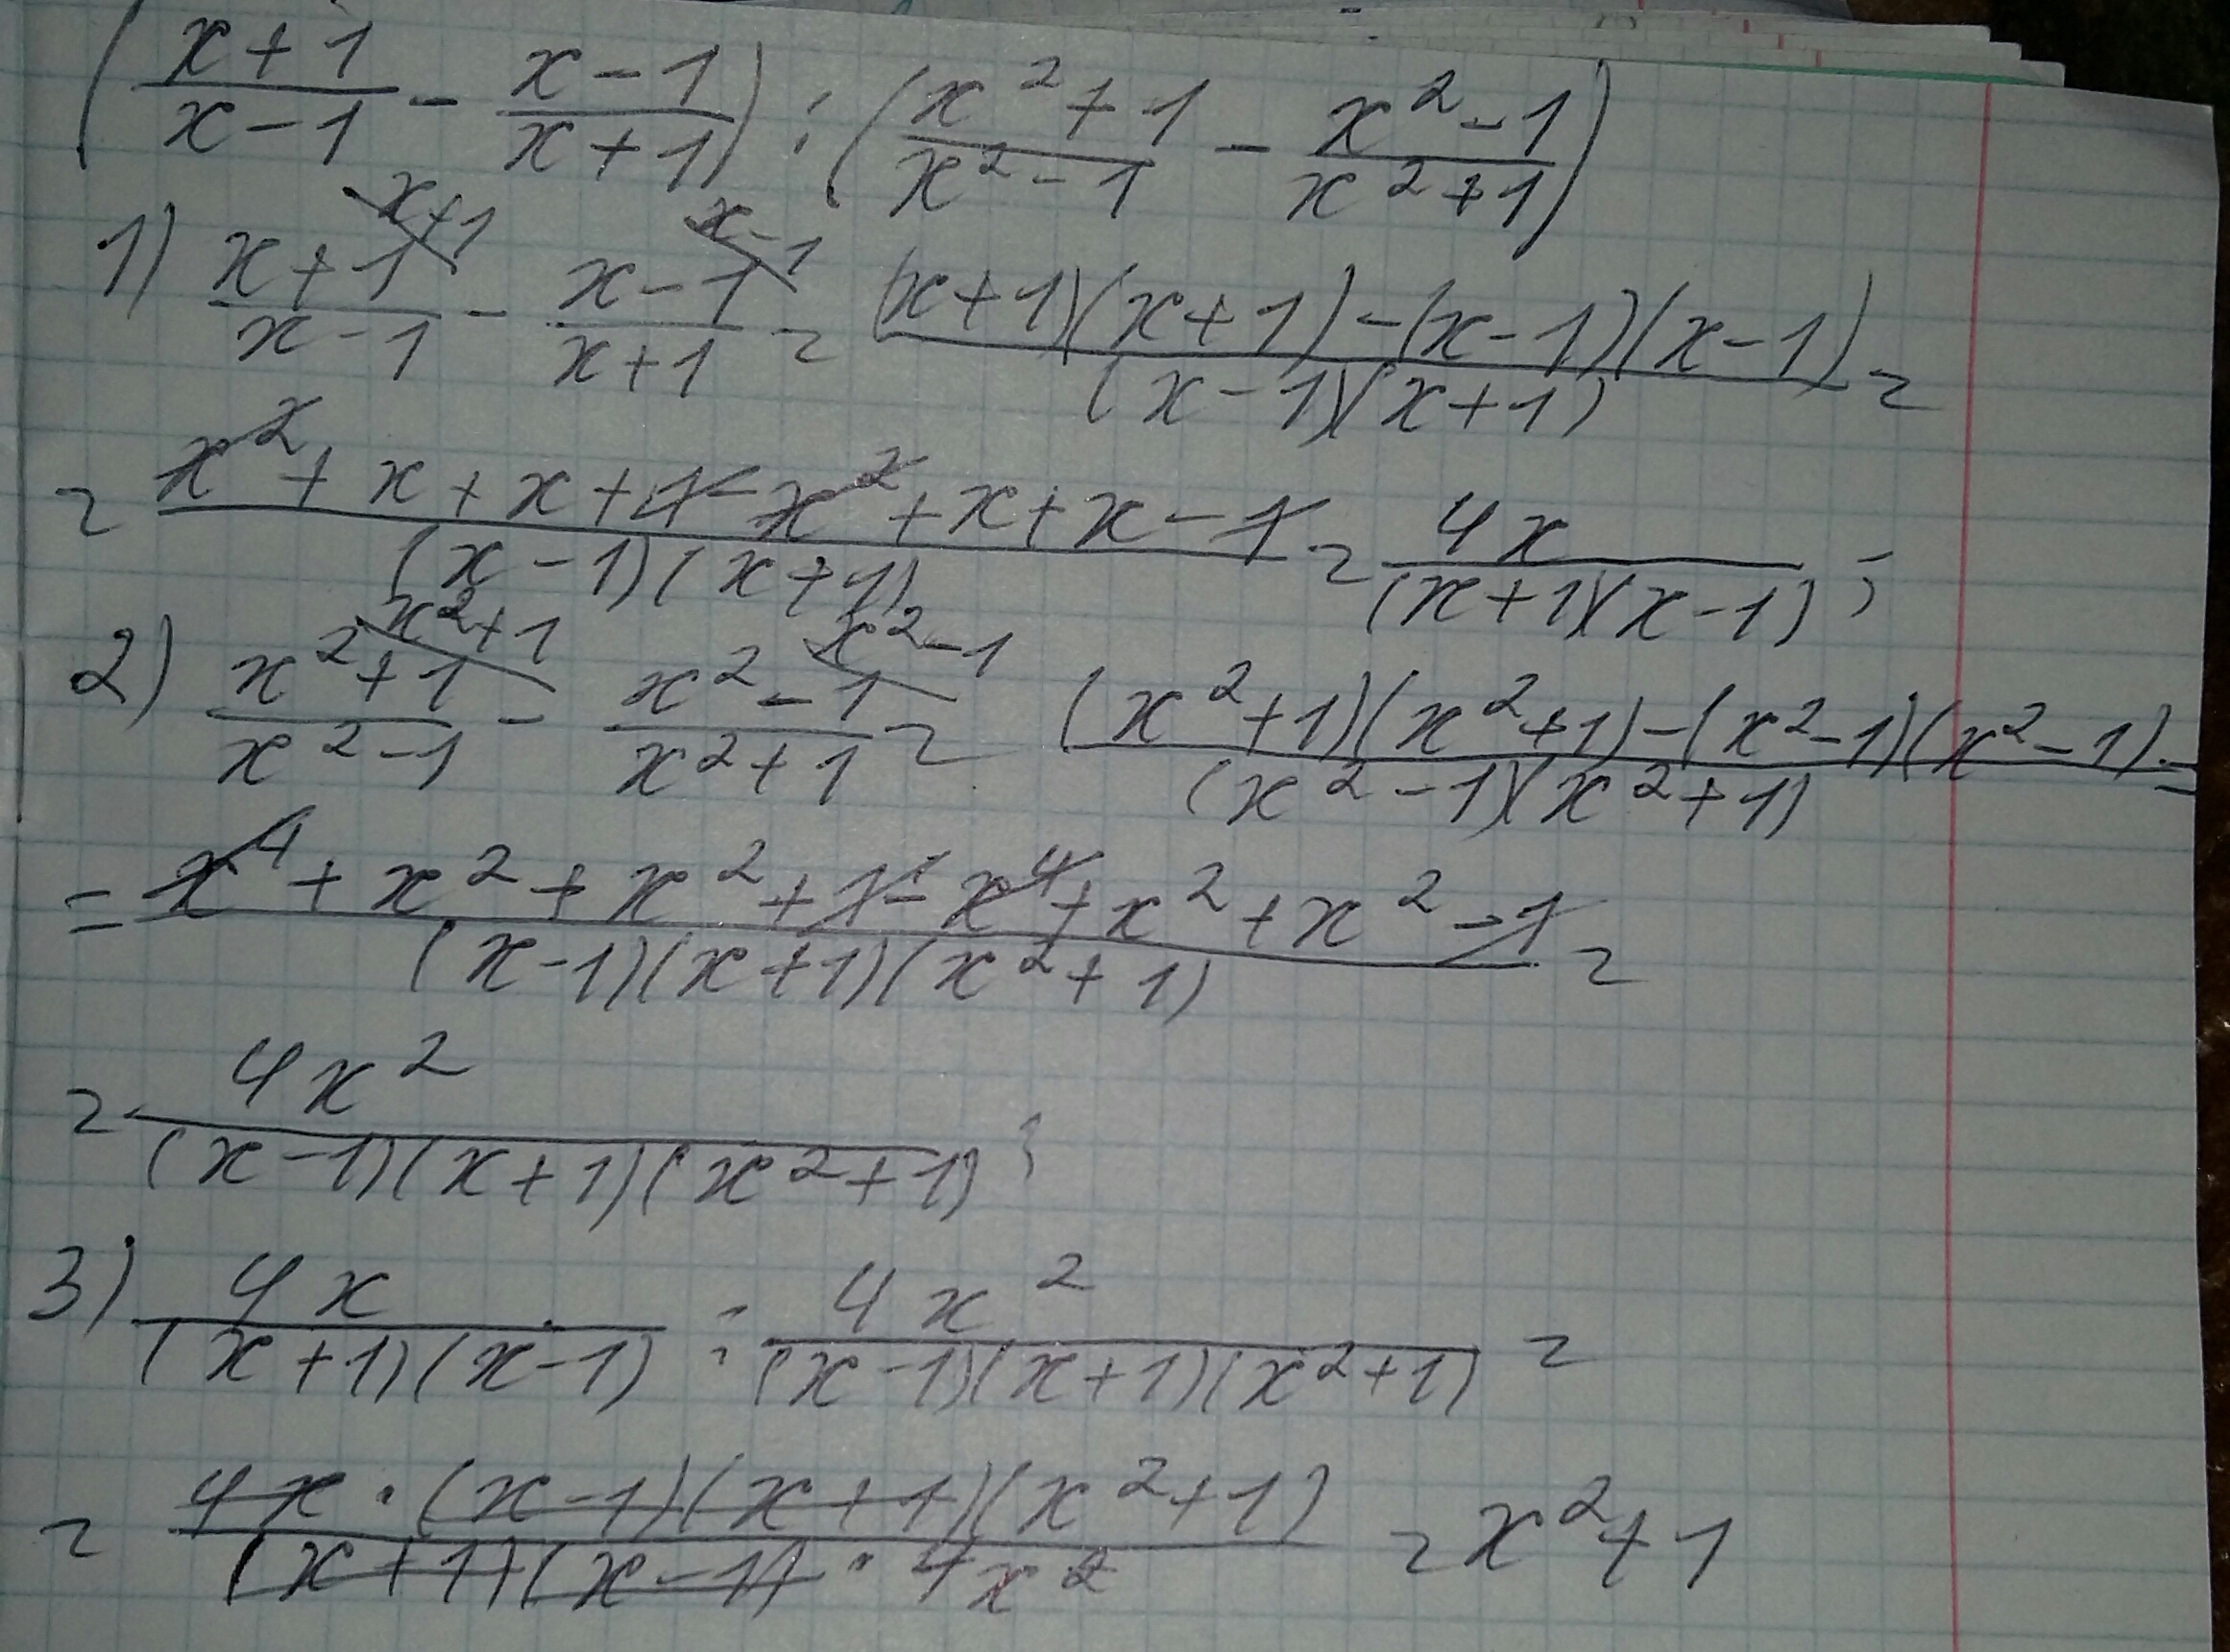 ( (x+1)/(x-1) - (x-1)/(x+1) ) : ( (x²+1)/(x²-1) - (x²-1)/(x²+1) )
1) (x+1)/(x-1) \x+1 - (x-1)/(x+1) \x-1 = ((x+1)(x+1)-(x-1)(x-1))/((x-1)(x+1)) =
= (x²+x+x+1-x²+x+x-1)/((x-1)(x+1)) = 4x/((x+1)(x-1));
2) (x²+1)/(x²-1) \x²+1 - (x²-1)/(x²+1) \x²-1 = ((x²+1)(x²+1)-(x²-1)(x²-1))/((x²-1)(x²+1)) =
= (x⁴+x²+x²+1-x⁴+x²+x²-1)/((x-1)(x+1)(x²+1)) =
= 4x²/((x-1)(x+1)(x²+1));
3) 4x/((x+1)(x-1)) : 4x²/((x-1)(x+1)(x²+1)) =
= (4x·(x-1)(x+1)(x²+1))/((x+1)(x-1)·4x²) = x²+1